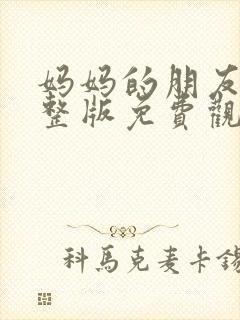 妈妈的朋友
整版免費觀
科馬克麦卡錫